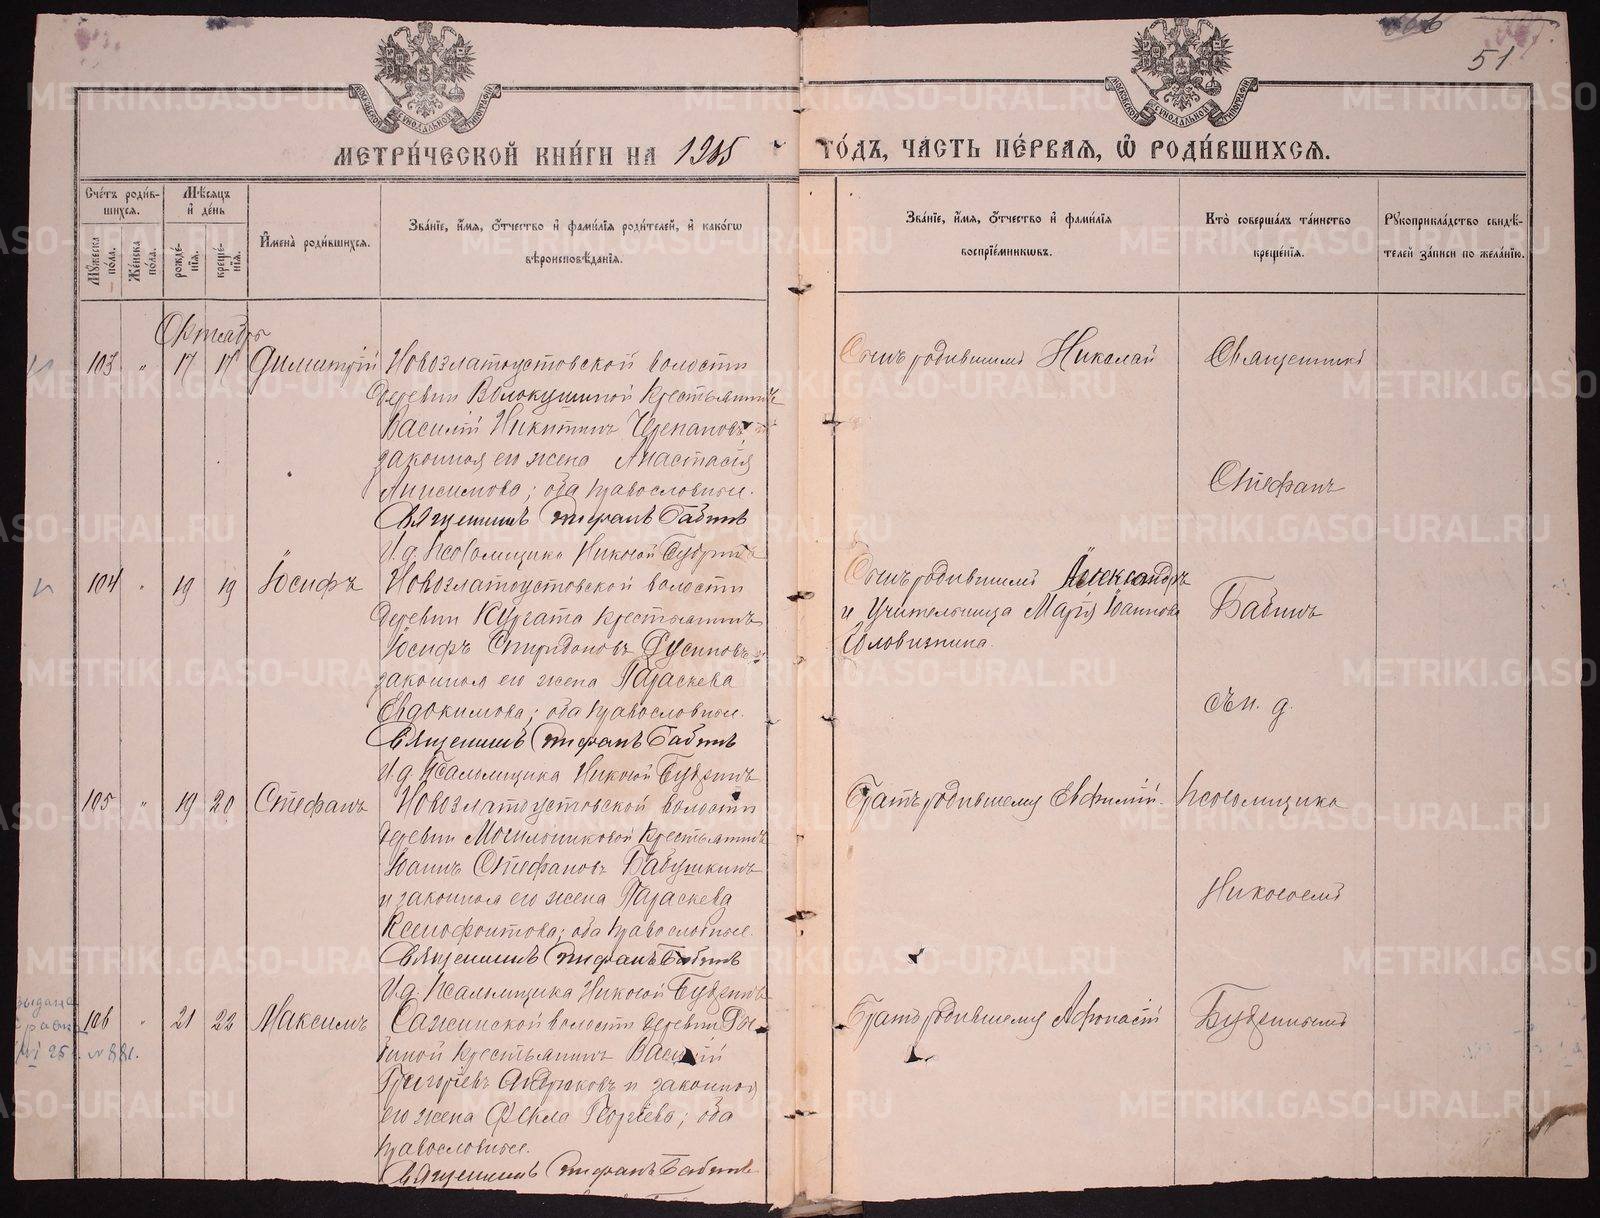 51
МЕТРИ́ЧЕСКОЙ КНИ́ГИ НА 1915 ГО́ДЪ, ЧА́СТЬ ПЕ́РВАЯ, Ѽ РОДИ́ВШИХСЯ.
Сче́тъ роди́вшихся.
Мѣ́сяцъ и҆ де́нь
И҆мена̀ роди́вшихся.
Зва́нїе, и҆́мя, ѻ҆́тчество и҆ фами́лїя роди́телей, и҆ како́гѡ вѣроисповѣ́данїя.
Зва́нїе, и҆́мя, ѻ҆́тчество и҆ фами́лїя воспрїе́мникѡвъ.
Кто̀ соверша́лъ та́инство креще́нїя.
Рꙋкоприкла́дство свидѣ́телей за́писи по жела́нїю.
Мꙋ́жеска по́ла.
Же́нска по́ла.
рожде́нїя.
креще́нїя.
Октябрь
103 " 17 17 Димитрій
Новозлатоустовской волости
деревни Волокушиной крестьянинъ
Василій Никитинъ Черепановъ и
законная его жена Анастасія
Анисимова; оба православные.
Священникъ Стефанъ Бабинъ
И. д. Псаломщика Николай Будринъ
Сынъ родившаго Николай
Священникъ
Стефанъ
104 " 19 19 Іосифъ
Новозлатоустовской волости
деревни Кургата крестьянинъ
Іосифъ Спиридоновъ Русиновъ и
законная его жена Параскева
Евдокимова; оба православные.
Священникъ Стефанъ Бабинъ
И. д. Псаломщика Николай Будринъ
Сынъ родившаго Александръ
и учительница Марія Іоаннова
Словизнина.
Бабинъ
съ и. д.
105 " 19 20 Стефанъ
Новозлатоустовской волости
деревни Могильниковой крестьянинъ
Іоаннъ Стефановъ Бабушкинъ
и законная его жена Параскева
Ксенофонтова; оба православные.
Священникъ Стефанъ Бабинъ
И. д. Псаломщика Николай Будринъ
Братъ родившему Евфимій.
Псаломщика
Николаемъ
106 " 21 22 Максимъ
Сажинской волости деревни
крестьянинъ Василій
Григоріевъ Андрюковъ и законная
его жена Фекла Георгіева; оба
православные.
Священникъ Стефанъ Бабинъ
Братъ родившему Афонасій
Будринымъ
выдана
справка
25 № 881.
METRIKI.GASO-URAL.RU